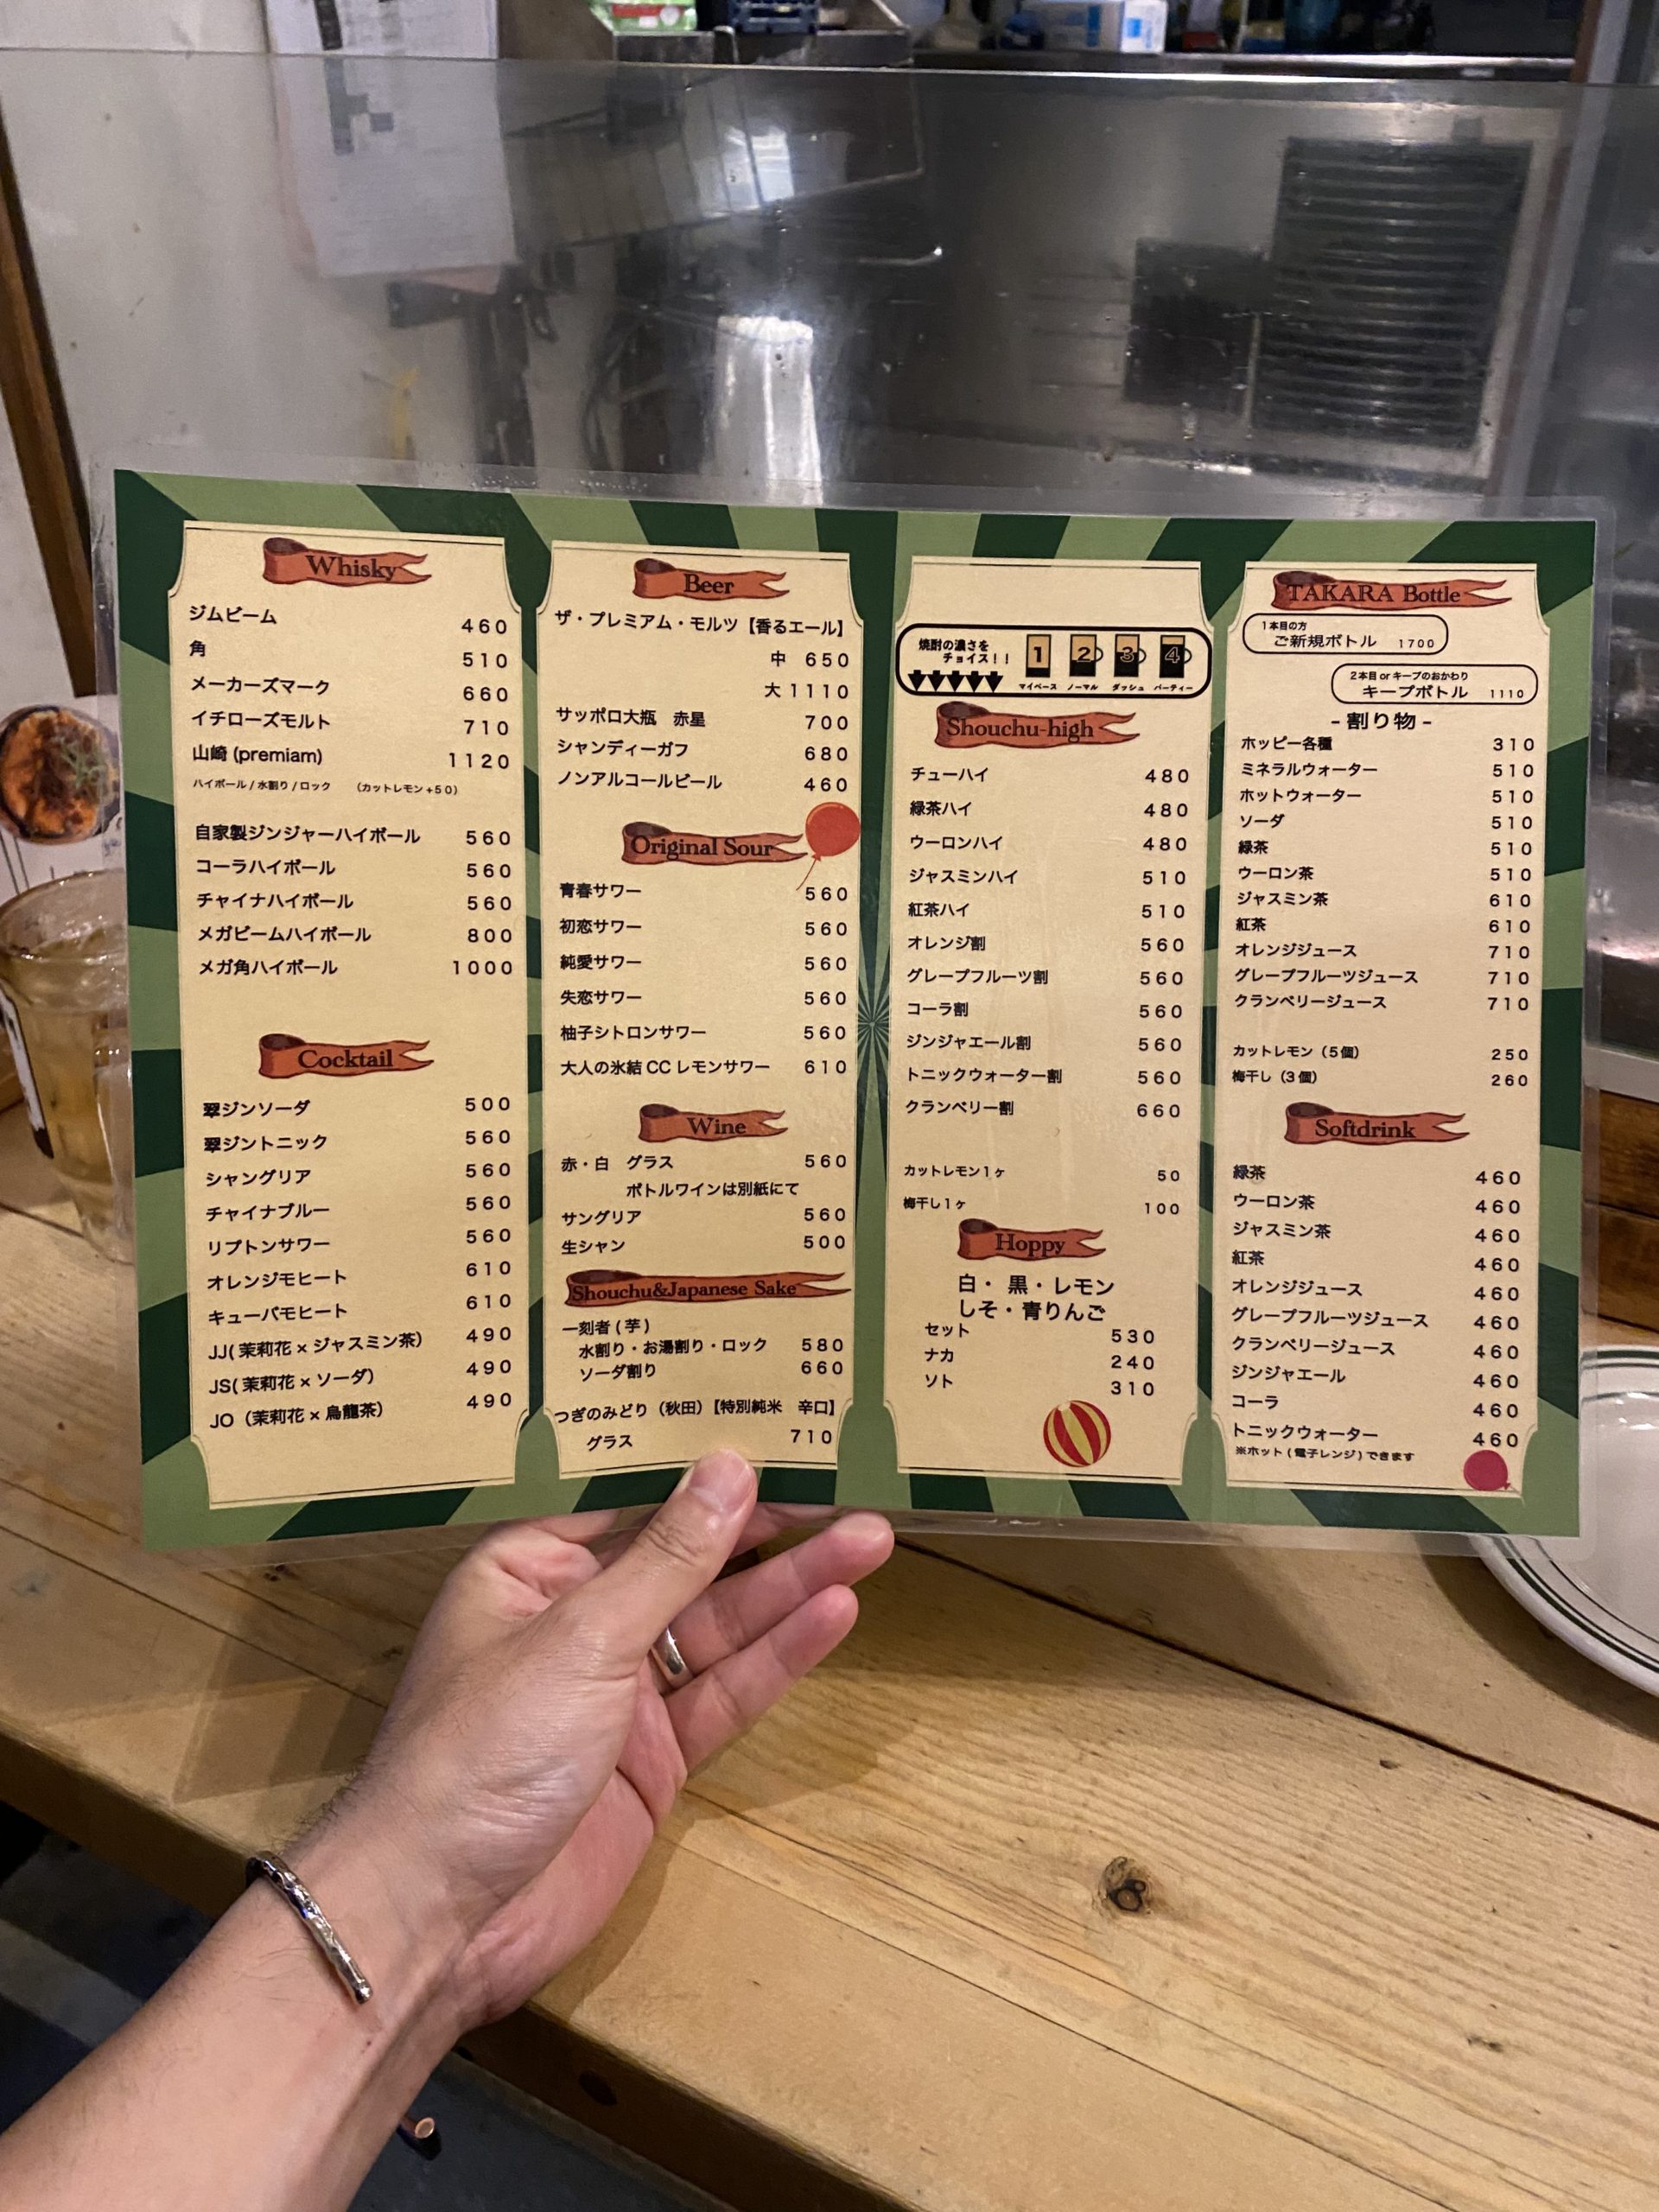 Whisky
ジムビーム 460
角 510
メーカーズマーク 660
イチローズモルト 710
山崎 (premiam) 1120
ハイボール / 水割り / ロック （カットレモン+50）
自家製ジンジャーハイボール 560
コーラハイボール 560
チャイナハイボール 560
メガビームハイボール 800
メガ角ハイボール 1000
Cocktail
翠ジンソーダ 500
翠ジントニック 560
シャングリア 560
チャイナブルー 560
リプトンサワー 560
オレンジモヒート 610
キューバモヒート 610
JJ( 茉莉花 × ジャスミン茶） 490
JS( 茉莉花 × ソーダ） 490
JO（茉莉花 × 烏龍茶） 490
Beer
ザ・プレミアム・モルツ【香るエール】
中 650
大 1110
サッポロ大瓶 赤星 700
シャンディーガフ 680
ノンアルコールビール 460
Original Sour
青春サワー 560
初恋サワー 560
純愛サワー 560
失恋サワー 560
柚子シトロンサワー 560
大人の氷結 CC レモンサワー 610
Wine
赤・白 グラス 560
ボトルワインは別紙にて
サングリア 560
生シャン 500
Shouchu&Japanese Sake
一刻者 ( 芋 )
水割り・お湯割り・ロック 580
ソーダ割り 660
つぎのみどり（秋田）【特別純米 辛口】
グラス 710
焼酎の濃さを
チョイス！！
1 2 3 4
マイペース ノーマル ダッシュ パーティー
Shouchu-high
チューハイ 480
緑茶ハイ 480
ウーロンハイ 480
ジャスミンハイ 510
紅茶ハイ 510
オレンジ割 560
グレープフルーツ割 560
コーラ割 560
ジンジャエール割 560
トニックウォーター割 560
クランベリー割 660
カットレモン1ヶ 50
梅干し1ヶ 100
Hoppy
白・ 黒・レモン
しそ・青りんご
セット 530
ナカ 240
ソト 310
TAKARA Bottle
1本目の方
ご新規ボトル 1700
2本目 or キープのおかわり
キープボトル 1110
- 割り物 -
ホッピー各種 310
ミネラルウォーター 510
ホットウォーター 510
ソーダ 510
緑茶 510
ウーロン茶 510
ジャスミン茶 610
紅茶 610
オレンジジュース 710
グレープフルーツジュース 710
クランベリージュース 710
カットレモン（5個） 250
梅干し（3個） 260
Softdrink
緑茶 460
ウーロン茶 460
ジャスミン茶 460
紅茶 460
オレンジジュース 460
グレープフルーツジュース 460
クランベリージュース 460
ジンジャエール 460
コーラ 460
トニックウォーター 460
※ホット ( 電子レンジ ) できます